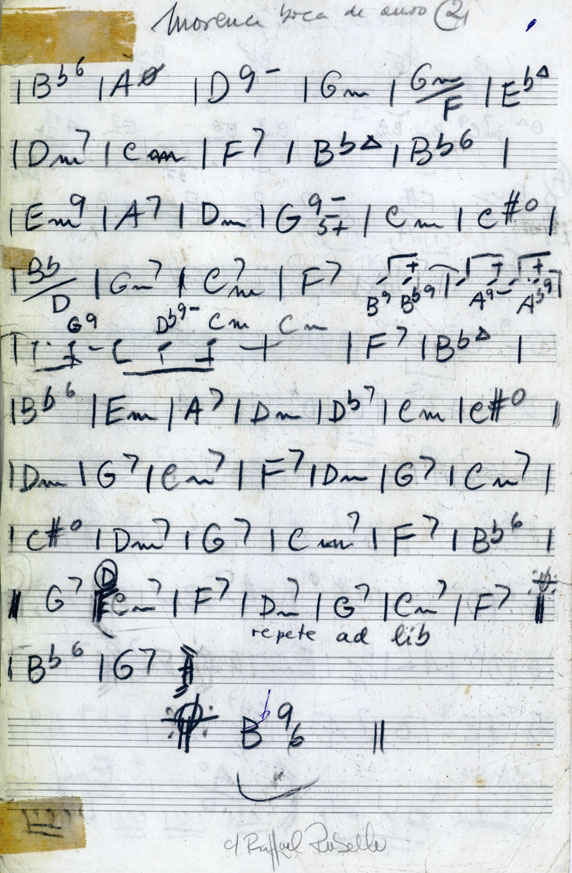 Morena boca de ouro (2)
|Bb6 |Aø |D9- |Gm |Gm/F |EbΔ
|Dm7 |Cm |F7 |BbΔ |Bb6 |
|Em9 |A7 |Dm |G9- 5+ |Cm |C#o |
|Bb/D |Gm7 |Cm7 |F7 B9 Bb9 A9- Ab9
G9 Db9- Cm Cm |F7 |BbΔ |
|Bb6 |Em |A7 |Dm |Db7 |Cm |C#o |
|Dm |G7 |Cm7 |F7 |Dm |G7 |Cm7 |
|C#o |Dm7 |G7 |Cm7 |F7 |Bb6 |
|| G7 D Cm7 |F7 |Dm7 |G7 |Cm7 |F7 ||
repete ad lib
|Bb6 |G7
Bb9/6 ||